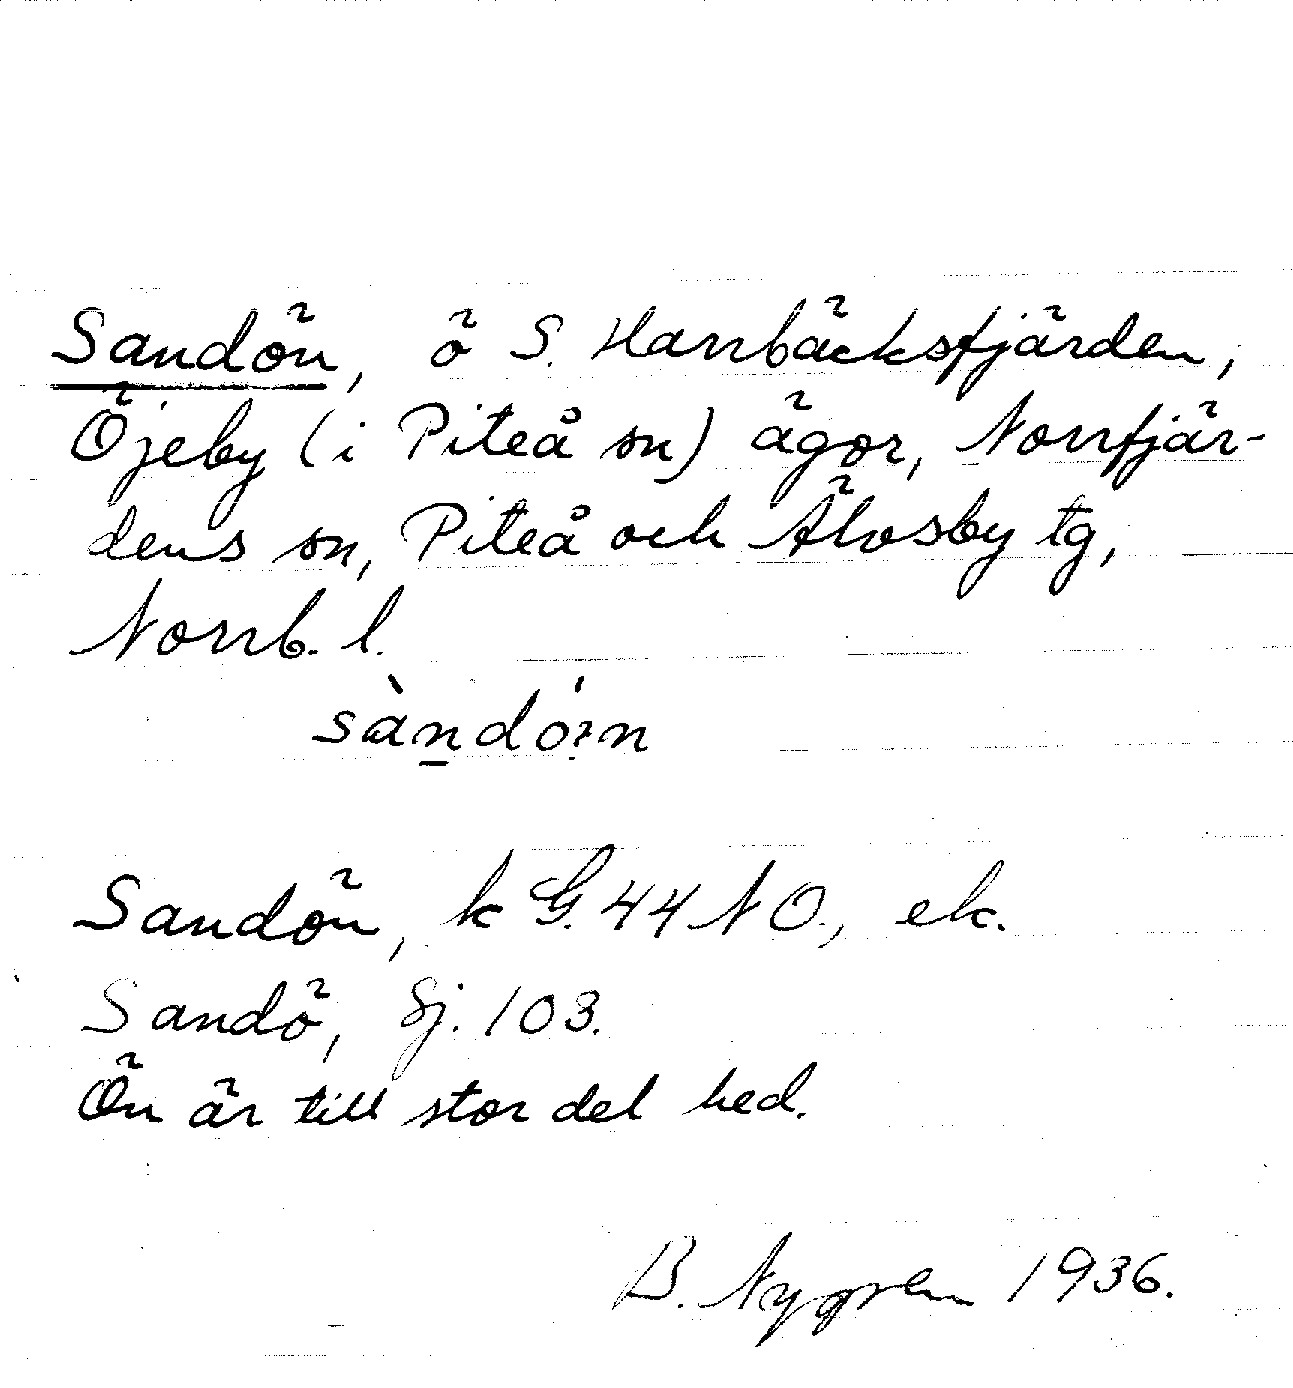 Sandön, ö S. Harrbäcksfjärden,
Öjeby (i Piteå sn) ägor, Norrfjär-
dens sn, Piteå och Älvsby tg,
Norrb. l.
sàn̲dó:n
Sandön, k G. 44 N O., ek.
Sandö, Sj. 103.
Ön är till stor del hed.
B. Nygren 1936.